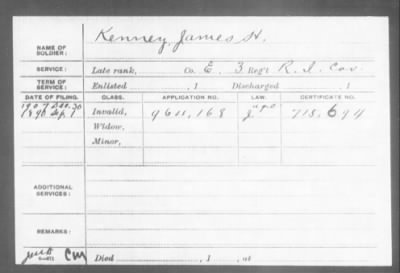 Kenney, James H.
NAME OF SOLDIER:
SERVICE: Late rank, Co. E, 3 Reg't R. I. Cav.
TERM OF SERVICE: Enlisted , 1 Discharged , 1
DATE OF FILING. CLASS. APPLICATION NO. LAW. CERTIFICATE NO.
1907 Dec. 30
1890 Sep. 1 Invalid, 960,168 718,694
Widow,
Minor,
ADDITIONAL SERVICES:
REMARKS:
Died , 1 , at